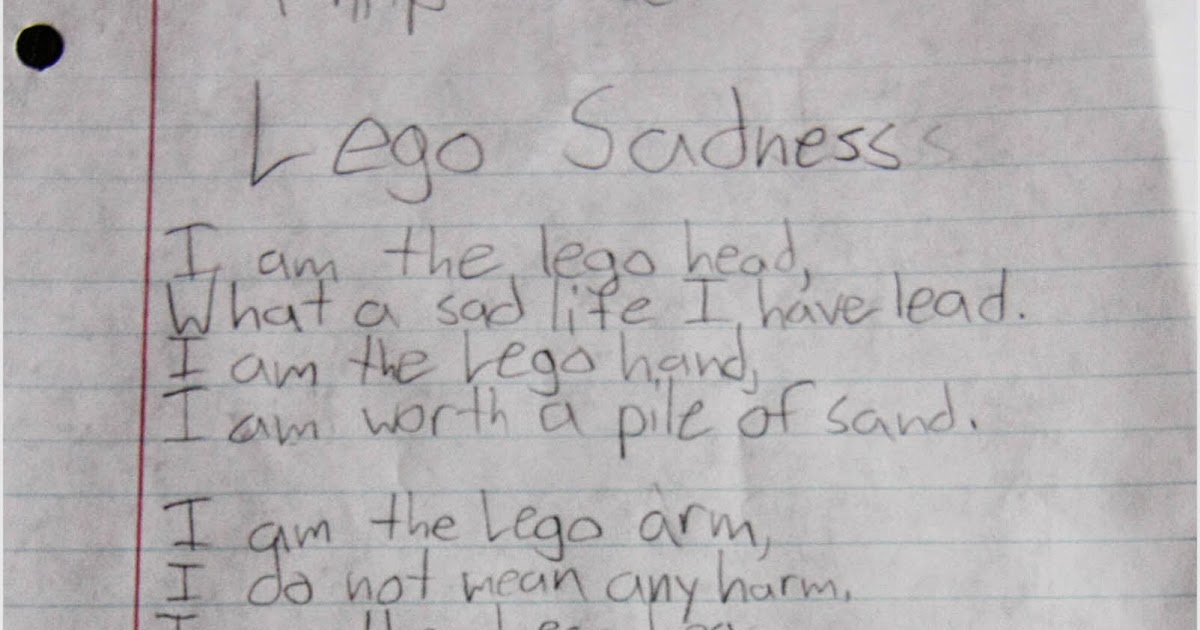 Lego Sadness
I am the lego head,
What a sad life I have lead.
I am the Lego hand,
I am worth a pile of sand.
I am the Lego arm,
I do not mean any harm.